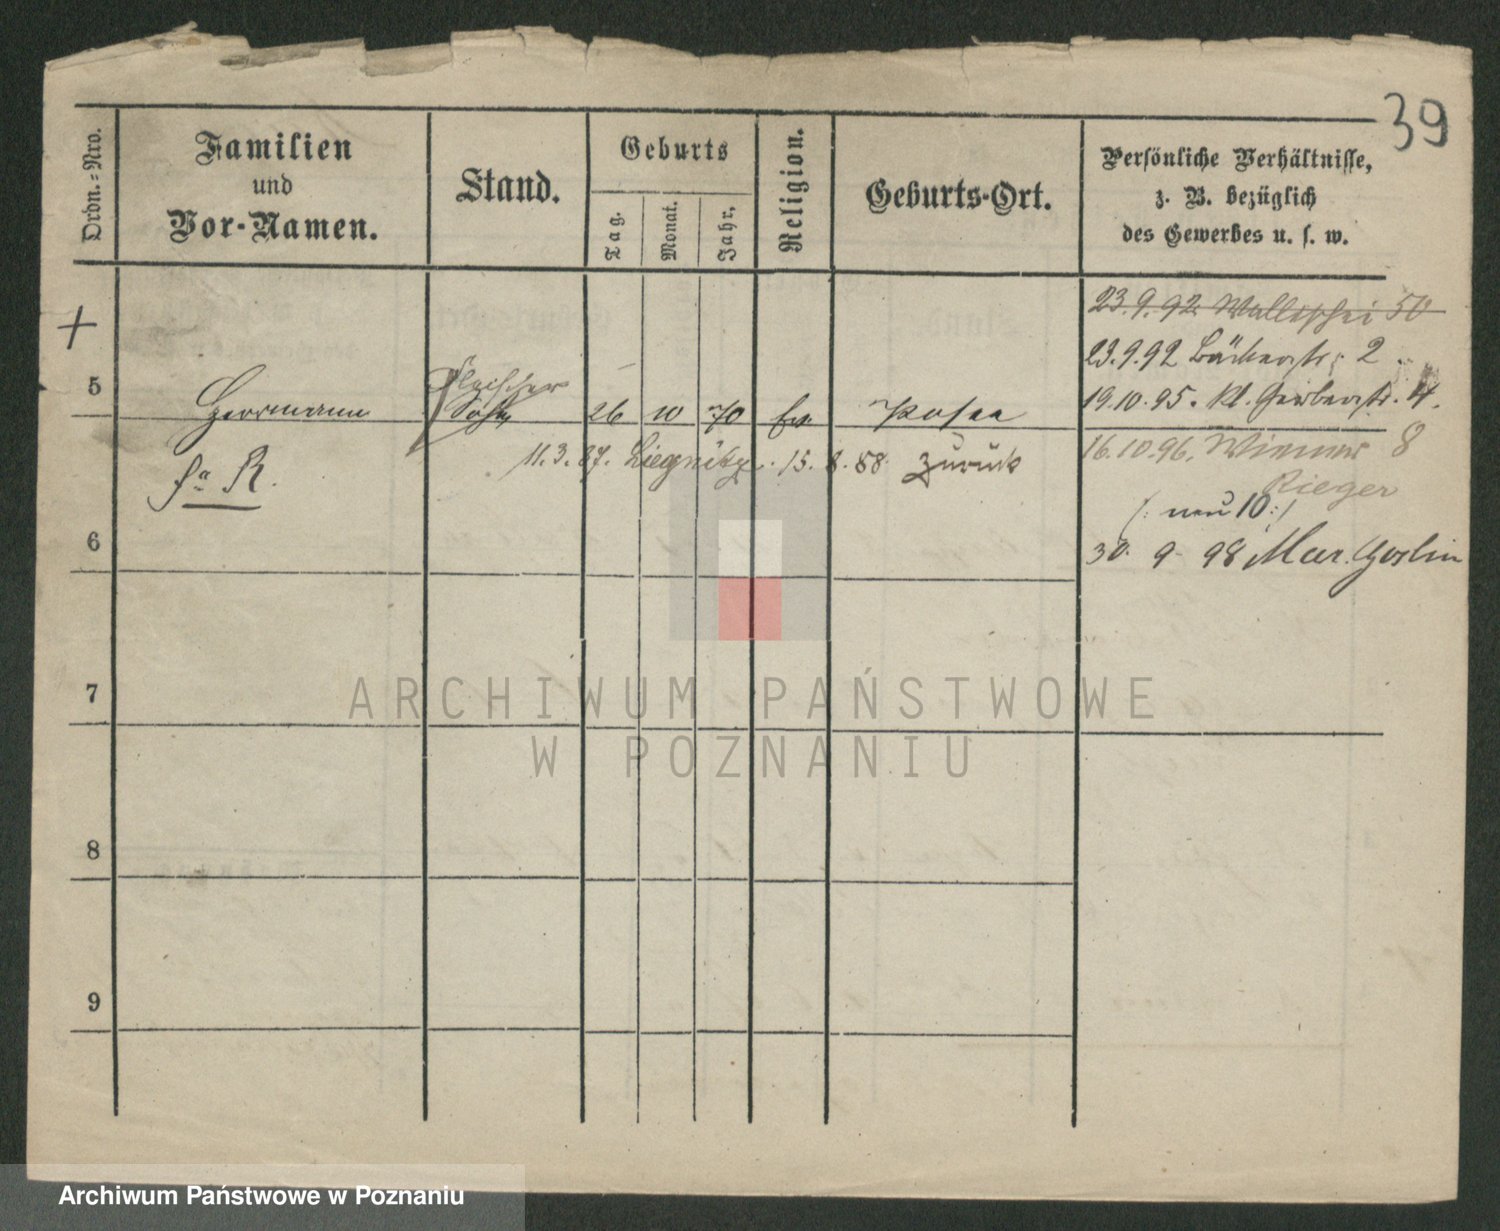 39
Ordn.-Nro.
Familien
und
Vor-Namen.
Stand.
Geburts
Tag.
Monat.
Jahr.
Religion.
Geburts-Ort.
Persönliche Verhältnisse,
z. B. bezüglich
des Gewerbes u. s. w.
23.9.92 Wallischei 50
23.9.92 Bäckerstr. 2
19.10.95. Kl. Gerberstr. 4.
5 Herrmann Fleischer Sohn 26 10 70 ev. Posen
11.3.87. Liegnitz. 15. 8. 88. zurück
16.10.96. Wiener 8
Rieger
(: neu 10 :)
30. 9. 98 Mar. Goslin
6
7
8
9
ARCHIWUM PAŃSTWOWE
W POZNANIU
Archiwum Państwowe w Poznaniu